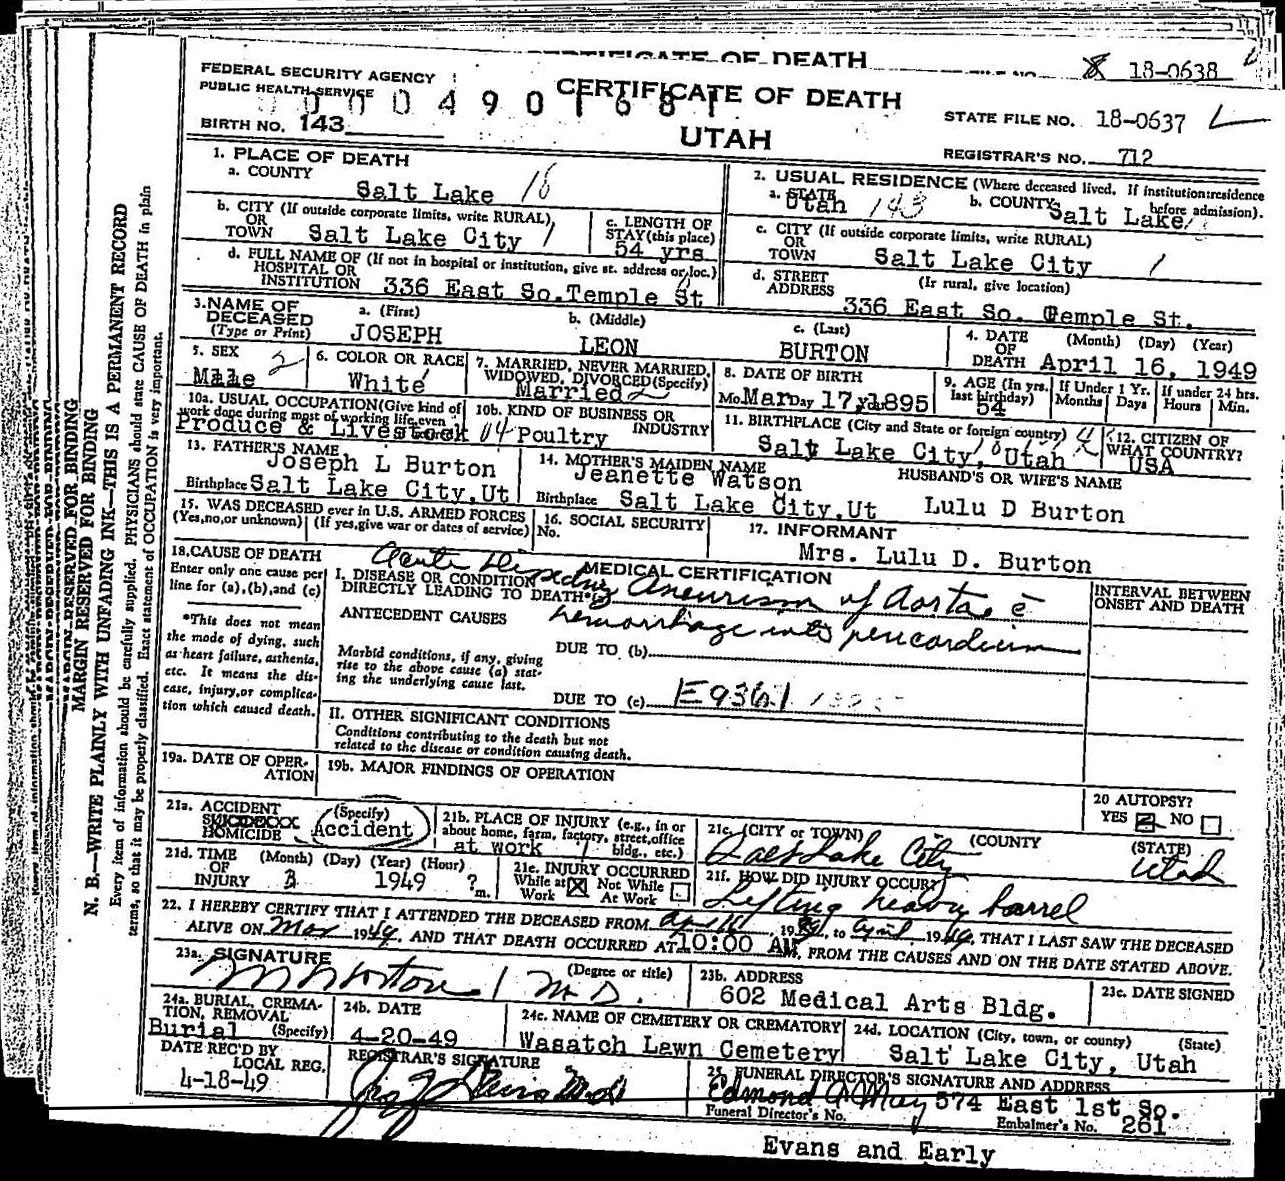 CERTIFICATE OF DEATH
18-0638
FEDERAL SECURITY AGENCY
PUBLIC HEALTH SERVICE
CERTIFICATE OF DEATH
UTAH
BIRTH NO. 143
STATE FILE NO. 18-0637
REGISTRAR'S NO. 712
MARGIN RESERVED FOR BINDING
N. B.—WRITE PLAINLY WITH UNFADING INK—THIS IS A PERMANENT RECORD
Every item of information should be carefully supplied. PHYSICIANS should state CAUSE OF DEATH in plain
terms, so that it may be properly classified. Exact statement of OCCUPATION is very important.
1. PLACE OF DEATH
a. COUNTY
Salt Lake 18
b. CITY (If outside corporate limits, write RURAL)
OR
TOWN Salt Lake City 1
c. LENGTH OF
STAY (this place)
54 yrs
d. FULL NAME OF (If not in hospital or institution, give st. address or loc.)
HOSPITAL OR
INSTITUTION 336 East So. Temple St
2. USUAL RESIDENCE (Where deceased lived. If institution: residence
before admission).
a. STATE Utah 143
b. COUNTY Salt Lake
c. CITY (If outside corporate limits, write RURAL)
OR
TOWN Salt Lake City 1
d. STREET (If rural, give location)
ADDRESS 336 East So. Temple St.
3. NAME OF
DECEASED
(Type or Print)
a. (First) JOSEPH
b. (Middle) LEON
c. (Last) BURTON
4. DATE (Month) (Day) (Year)
OF
DEATH April 16, 1949
5. SEX
Male 2
6. COLOR OR RACE
White
7. MARRIED, NEVER MARRIED,
WIDOWED, DIVORCED (Specify)
Married 2
8. DATE OF BIRTH
Mo. Mar Day 17, 1895
9. AGE (In yrs. last birthday)
54
If Under 1 Yr. Months Days
If under 24 hrs. Hours Min.
10a. USUAL OCCUPATION (Give kind of
work done during most of working life, even
Produce & Livestock 04
10b. KIND OF BUSINESS OR
INDUSTRY
Poultry
11. BIRTHPLACE (City and State or foreign country)
Salt Lake City, Utah
12. CITIZEN OF
WHAT COUNTRY?
USA
13. FATHER'S NAME
Joseph L Burton
Birthplace Salt Lake City, Ut
14. MOTHER'S MAIDEN NAME
Jeanette Watson
Birthplace Salt Lake City, Ut
HUSBAND'S OR WIFE'S NAME
Lulu D Burton
15. WAS DECEASED ever in U.S. ARMED FORCES
(Yes, no, or unknown) (If yes, give war or dates of service)
16. SOCIAL SECURITY
No.
17. INFORMANT
Mrs. Lulu D. Burton
18. CAUSE OF DEATH
Enter only one cause per
line for (a), (b), and (c)
*This does not mean
the mode of dying, such
as heart failure, asthenia,
etc. It means the dis-
ease, injury, or complica-
tion which caused death.
MEDICAL CERTIFICATION
I. DISEASE OR CONDITION
DIRECTLY LEADING TO DEATH*(a)
Acute Dissecting Aneurism of Aorta c̄
hemorrhage into pericardium
ANTECEDENT CAUSES
Morbid conditions, if any, giving
rise to the above cause (a) stat-
ing the underlying cause last.
DUE TO (b)
DUE TO (c) E936.1
INTERVAL BETWEEN
ONSET AND DEATH
II. OTHER SIGNIFICANT CONDITIONS
Conditions contributing to the death but not
related to the disease or condition causing death.
19a. DATE OF OPER-
ATION
19b. MAJOR FINDINGS OF OPERATION
20 AUTOPSY?
YES NO
21a. ACCIDENT (Specify)
HOMICIDE Accident
21b. PLACE OF INJURY (e.g., in or
about home, farm, factory, street, office
bldg., etc.)
at work
21c. (CITY or TOWN) (COUNTY (STATE)
Salt Lake City Utah
21d. TIME (Month) (Day) (Year) (Hour)
OF
INJURY 3 1949 ? m.
21e. INJURY OCCURRED
While at Work Not While At Work
21f. HOW DID INJURY OCCUR?
Lifting heavy barrel
22. I HEREBY CERTIFY THAT I ATTENDED THE DECEASED FROM 19 , to April 19 , THAT I LAST SAW THE DECEASED
ALIVE ON Mar 1949, AND THAT DEATH OCCURRED AT 10:00 AM, FROM THE CAUSES AND ON THE DATE STATED ABOVE.
23a. SIGNATURE (Degree or title)
M.D.
23b. ADDRESS
602 Medical Arts Bldg.
23c. DATE SIGNED
24a. BURIAL, CREMA-
TION, REMOVAL
Burial (Specify)
24b. DATE
4-20-49
24c. NAME OF CEMETERY OR CREMATORY
Wasatch Lawn Cemetery
24d. LOCATION (City, town, or county) (State)
Salt Lake City, Utah
DATE REC'D BY
LOCAL REG.
4-18-49
REGISTRAR'S SIGNATURE
25. FUNERAL DIRECTOR'S SIGNATURE AND ADDRESS
Edmond A May 574 East 1st So.
Funeral Director's No.
Embalmer's No. 261
Evans and Early